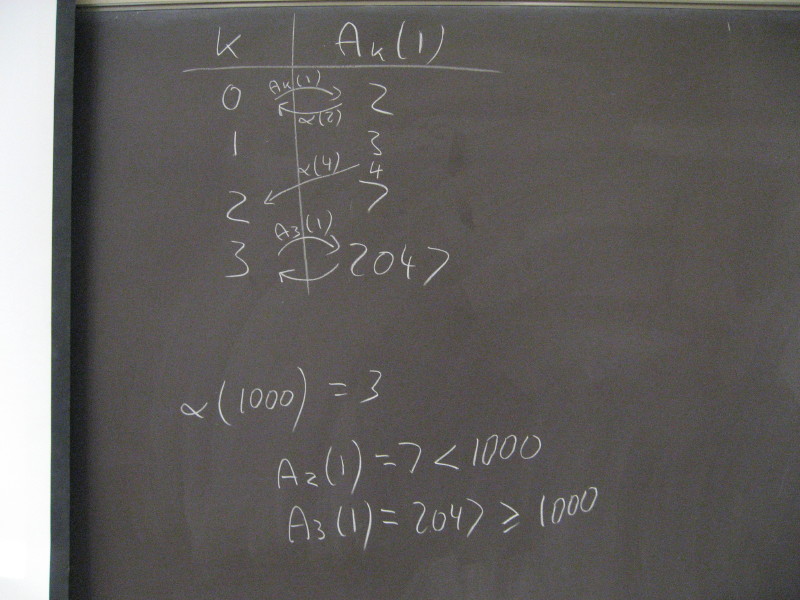 k A_k(1)
0 A_k(1) 2
α(2)
1 3
α(4) 4
2 7
A_3(1)
3 2047
α(1000) = 3
A_2(1) = 7 < 1000
A_3(1) = 2047 ≥ 1000